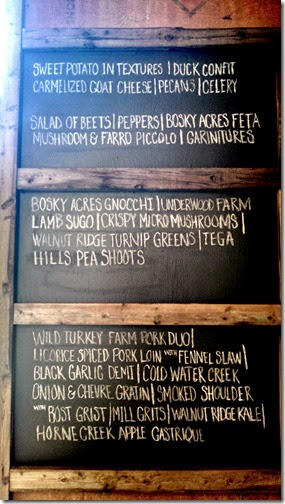 SWEET POTATO IN TEXTURES | DUCK CONFIT
CARMELIZED GOAT CHEESE | PECANS | CELERY
SALAD OF BEETS | PEPPERS | BOSKY ACRES FETA
MUSHROOM & FARRO PICCOLO | GARINITURES
BOSKY ACRES GNOCCHI | UNDERWOOD FARM
LAMB SUGO | CRISPY MICRO MUSHROOMS |
WALNUT RIDGE TURNIP GREENS | TEGA
HILLS PEA SHOOTS
WILD TURKEY FARM PORK DUO |
LICORICE SPICED PORK LOIN WITH FENNEL SLAW |
BLACK GARLIC DEMI | COLD WATER CREEK
ONION & CHEVRE GRATIN | SMOKED SHOULDER
WITH BOST GRIST | MILL GRITS | WALNUT RIDGE KALE |
HORNE CREEK APPLE GASTRIQUE